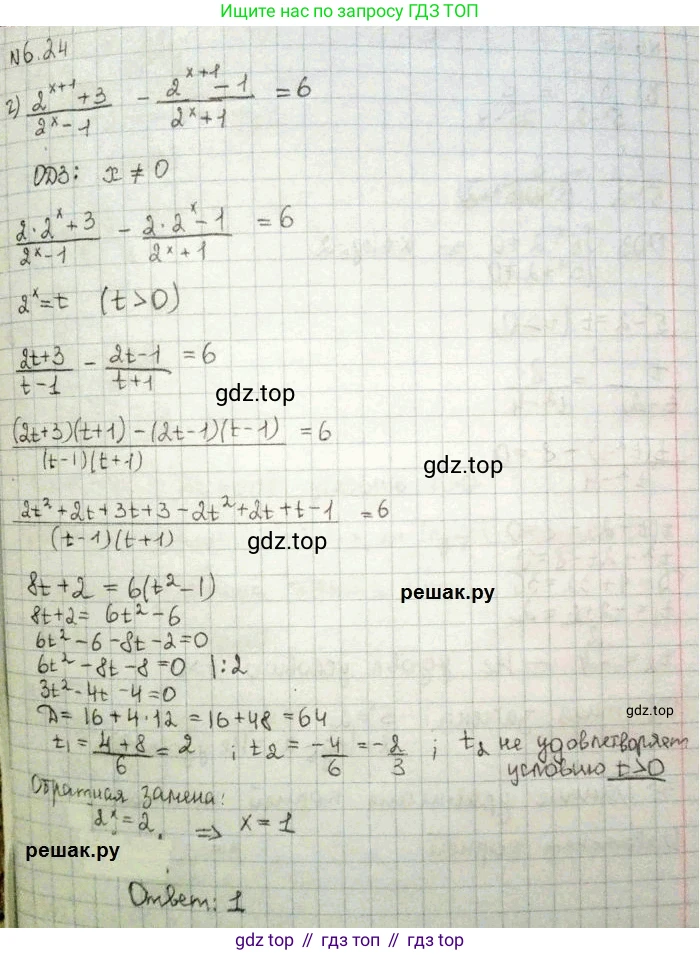 Больше решений на gdz.top
№6.24
г) (2^(x+1)+3)/(2^x-1) - (2^(x+1)-1)/(2^x+1) = 6
ОДЗ: x ≠ 0
(2·2^x+3)/(2^x-1) - (2·2^x-1)/(2^x+1) = 6
2^x=t (t>0)
(2t+3)/(t-1) - (2t-1)/(t+1) = 6
gdz.top
((2t+3)(t+1)-(2t-1)(t-1))/((t-1)(t+1)) = 6
gdz.top
(2t²+2t+3t+3-2t²+2t+t-1)/((t-1)(t+1)) = 6
gdz.top
8t+2 = 6(t²-1)
решак.ру
8t+2= 6t²-6
6t²-6-8t-2=0
6t²-8t-8=0 |:2
3t²-4t-4=0
gdz.top
Д= 16+4·12 = 16+48=64
t₁=(4+8)/6=2 ; t₂=-4/6=-2/3 ; t₂ не удовлетворяет
условию t>0
Обратная замена:
2^x=2 ⇒ x=1
решак.ру
Ответ: 1
gdz.top // гдз топ // gdz top